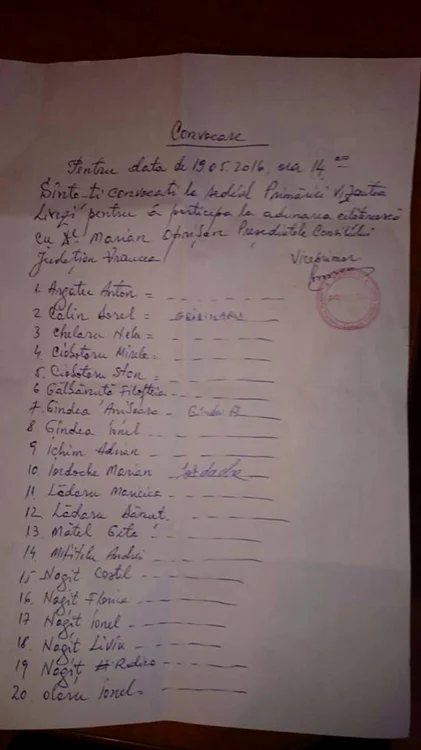 Convocare
Pentru data de 19.05.2016, ora 14 00
Sînteti convocati la sediul Primăriei Vizantea
Livezi pentru a participa la adunarea cetătenească
cu Dl Marian Oprișan Presedintele Consiliului
Judetian Vrancea
Viceprimar
1. Argatu Anton =
2 Călin Aurel =
3 Chelaru Nelu =
4 Ciobotaru Mirela =
5. Ciobotaru Stan =
6 Gălbănută Filofteia
7. Gindea Anisoara - Gindea A
8. Gindea Ionel
9 Ichim Adrian
10. Iordache Marian Iordache
11. Lădaru Maricica
12. Lădaru Dănut
13. Mătel Geta
14. Mititelu Andrei
15 Nagît Costel
16. Nagît Florica
17 Nagît Ionel
18. Nagît Liviu
19 Nagît Rodica
20 Olaru Ionel =